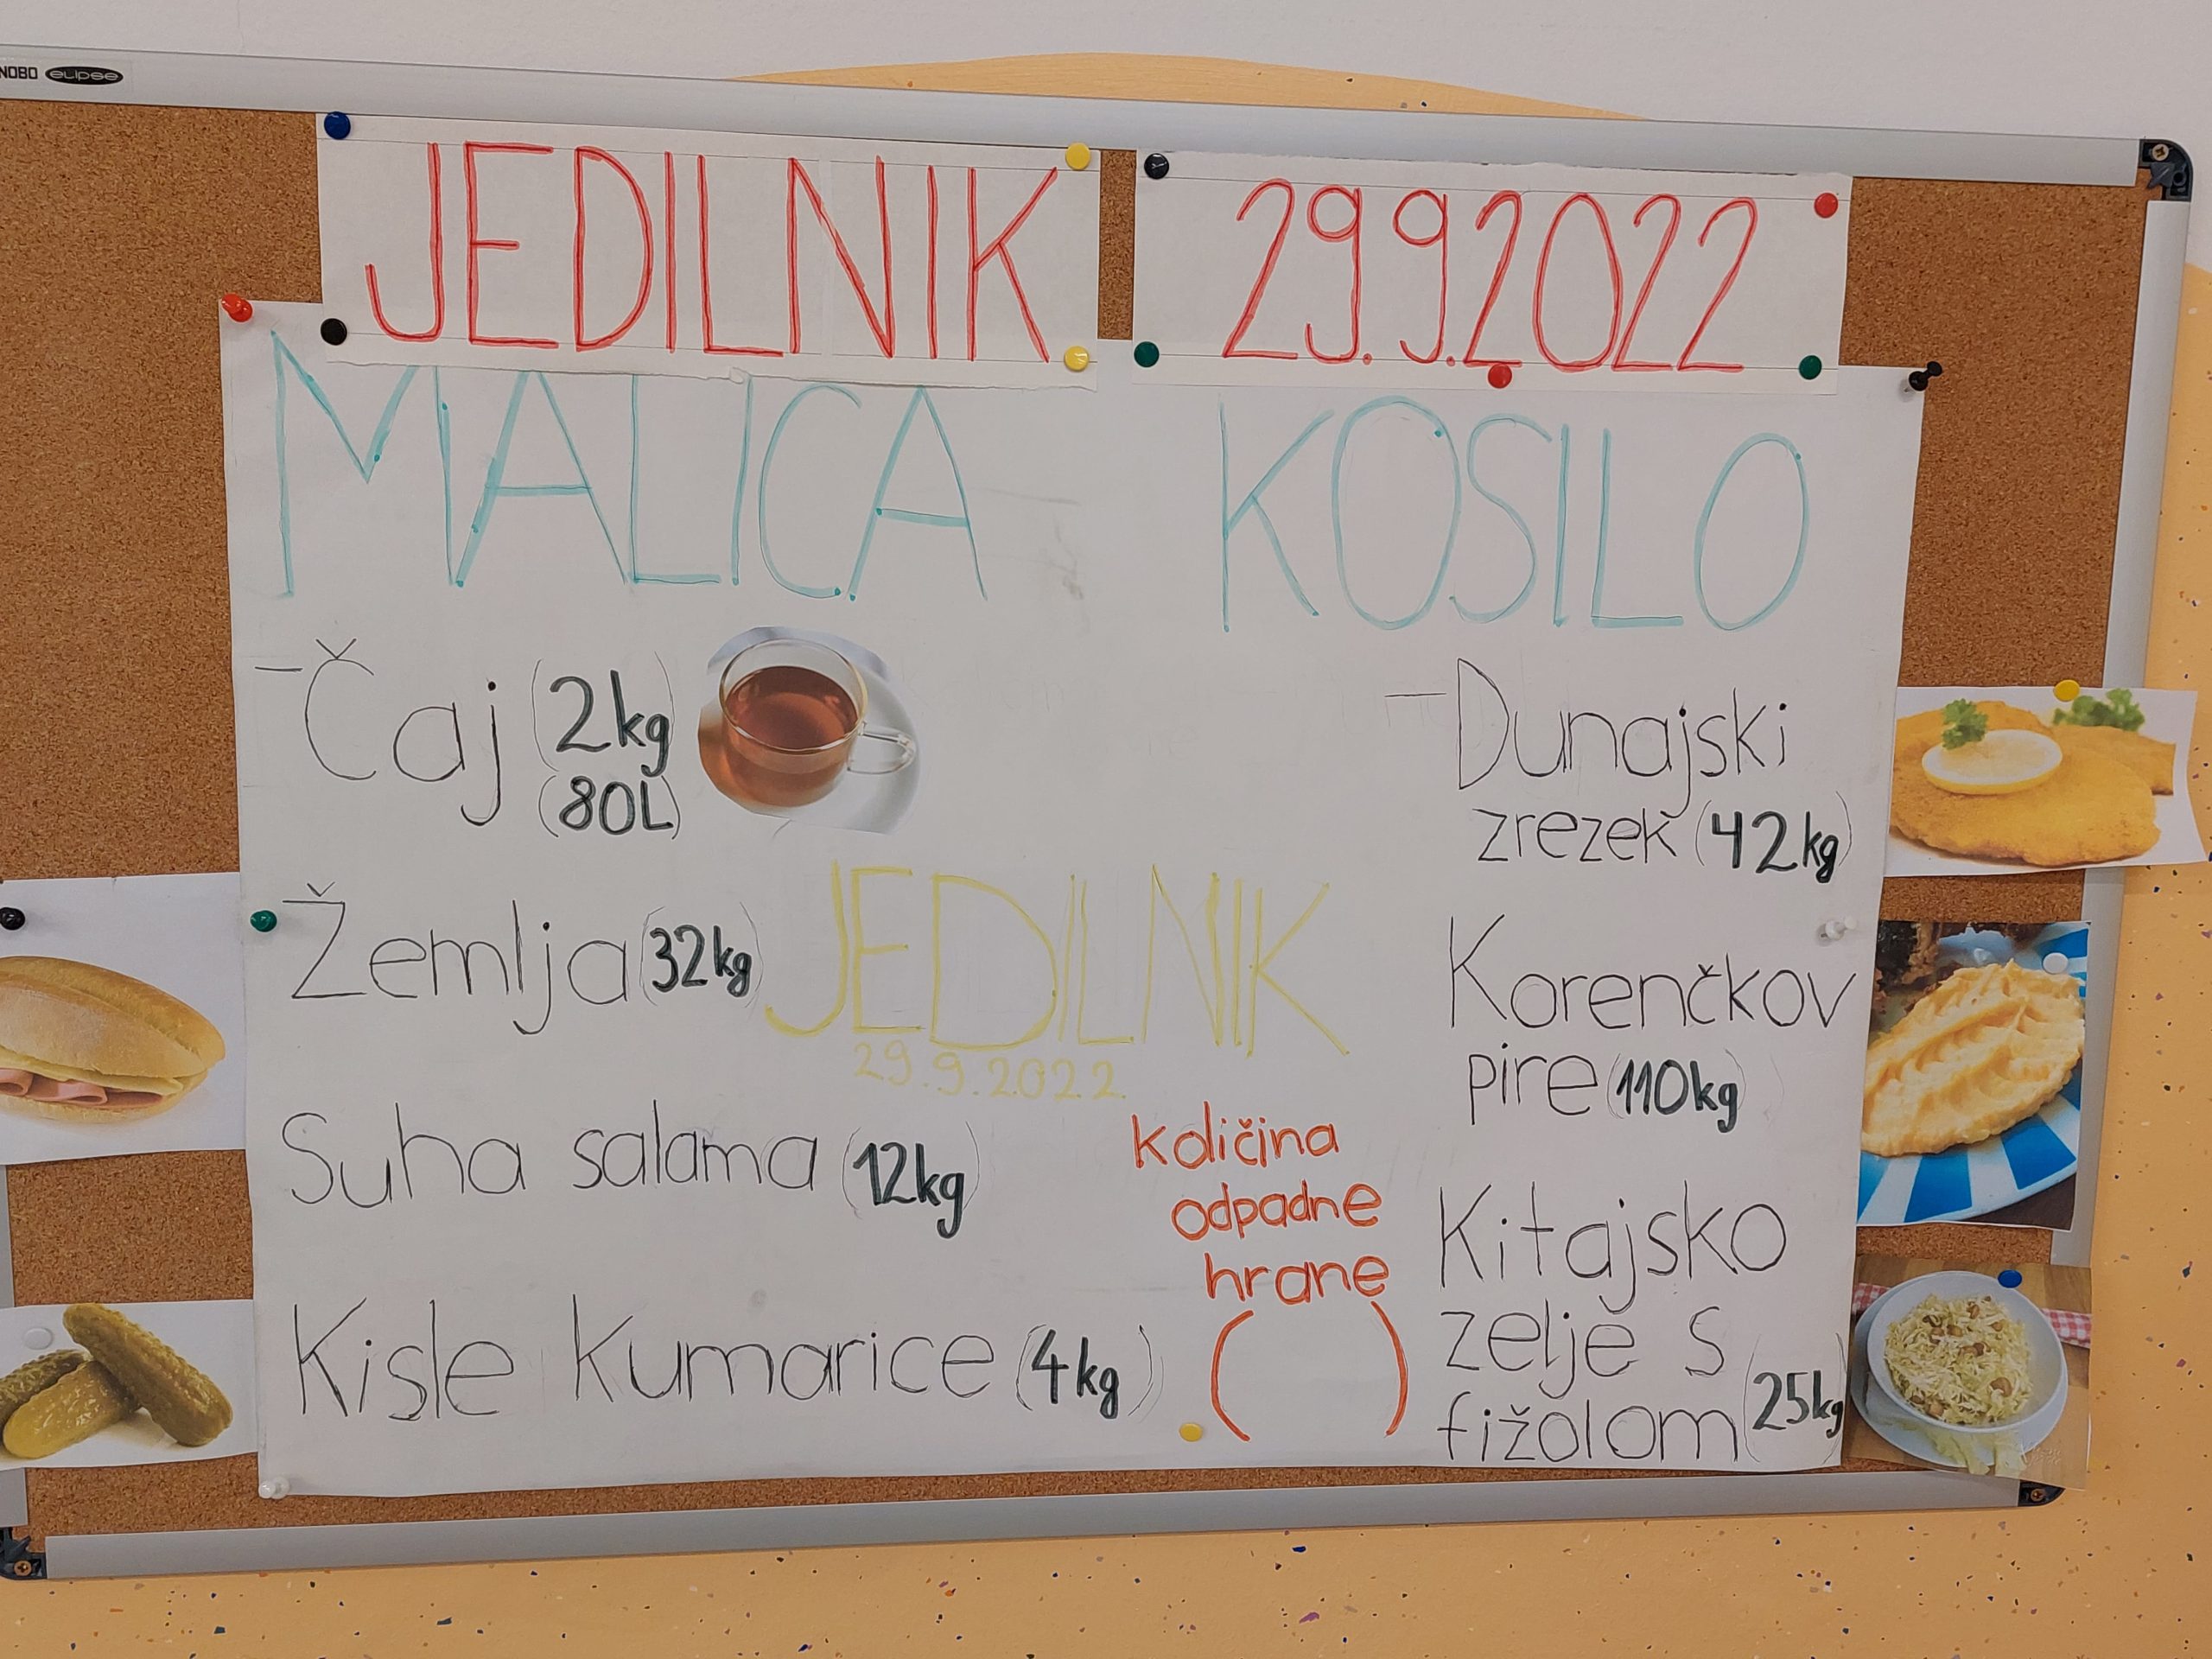 NOBO elipse
JEDILNIK 29.9.2022
MALICA
- Čaj (2kg)
(80L)
Žemlja (32kg)
Suha salama (12kg)
Kisle kumarice (4kg)
JEDILNIK
29.9.2022
količina
odpadne
hrane
( )
KOSILO
- Dunajski
zrezek (42kg)
Korenčkov
pire (110kg)
Kitajsko
zelje s
fižolom (25kg)